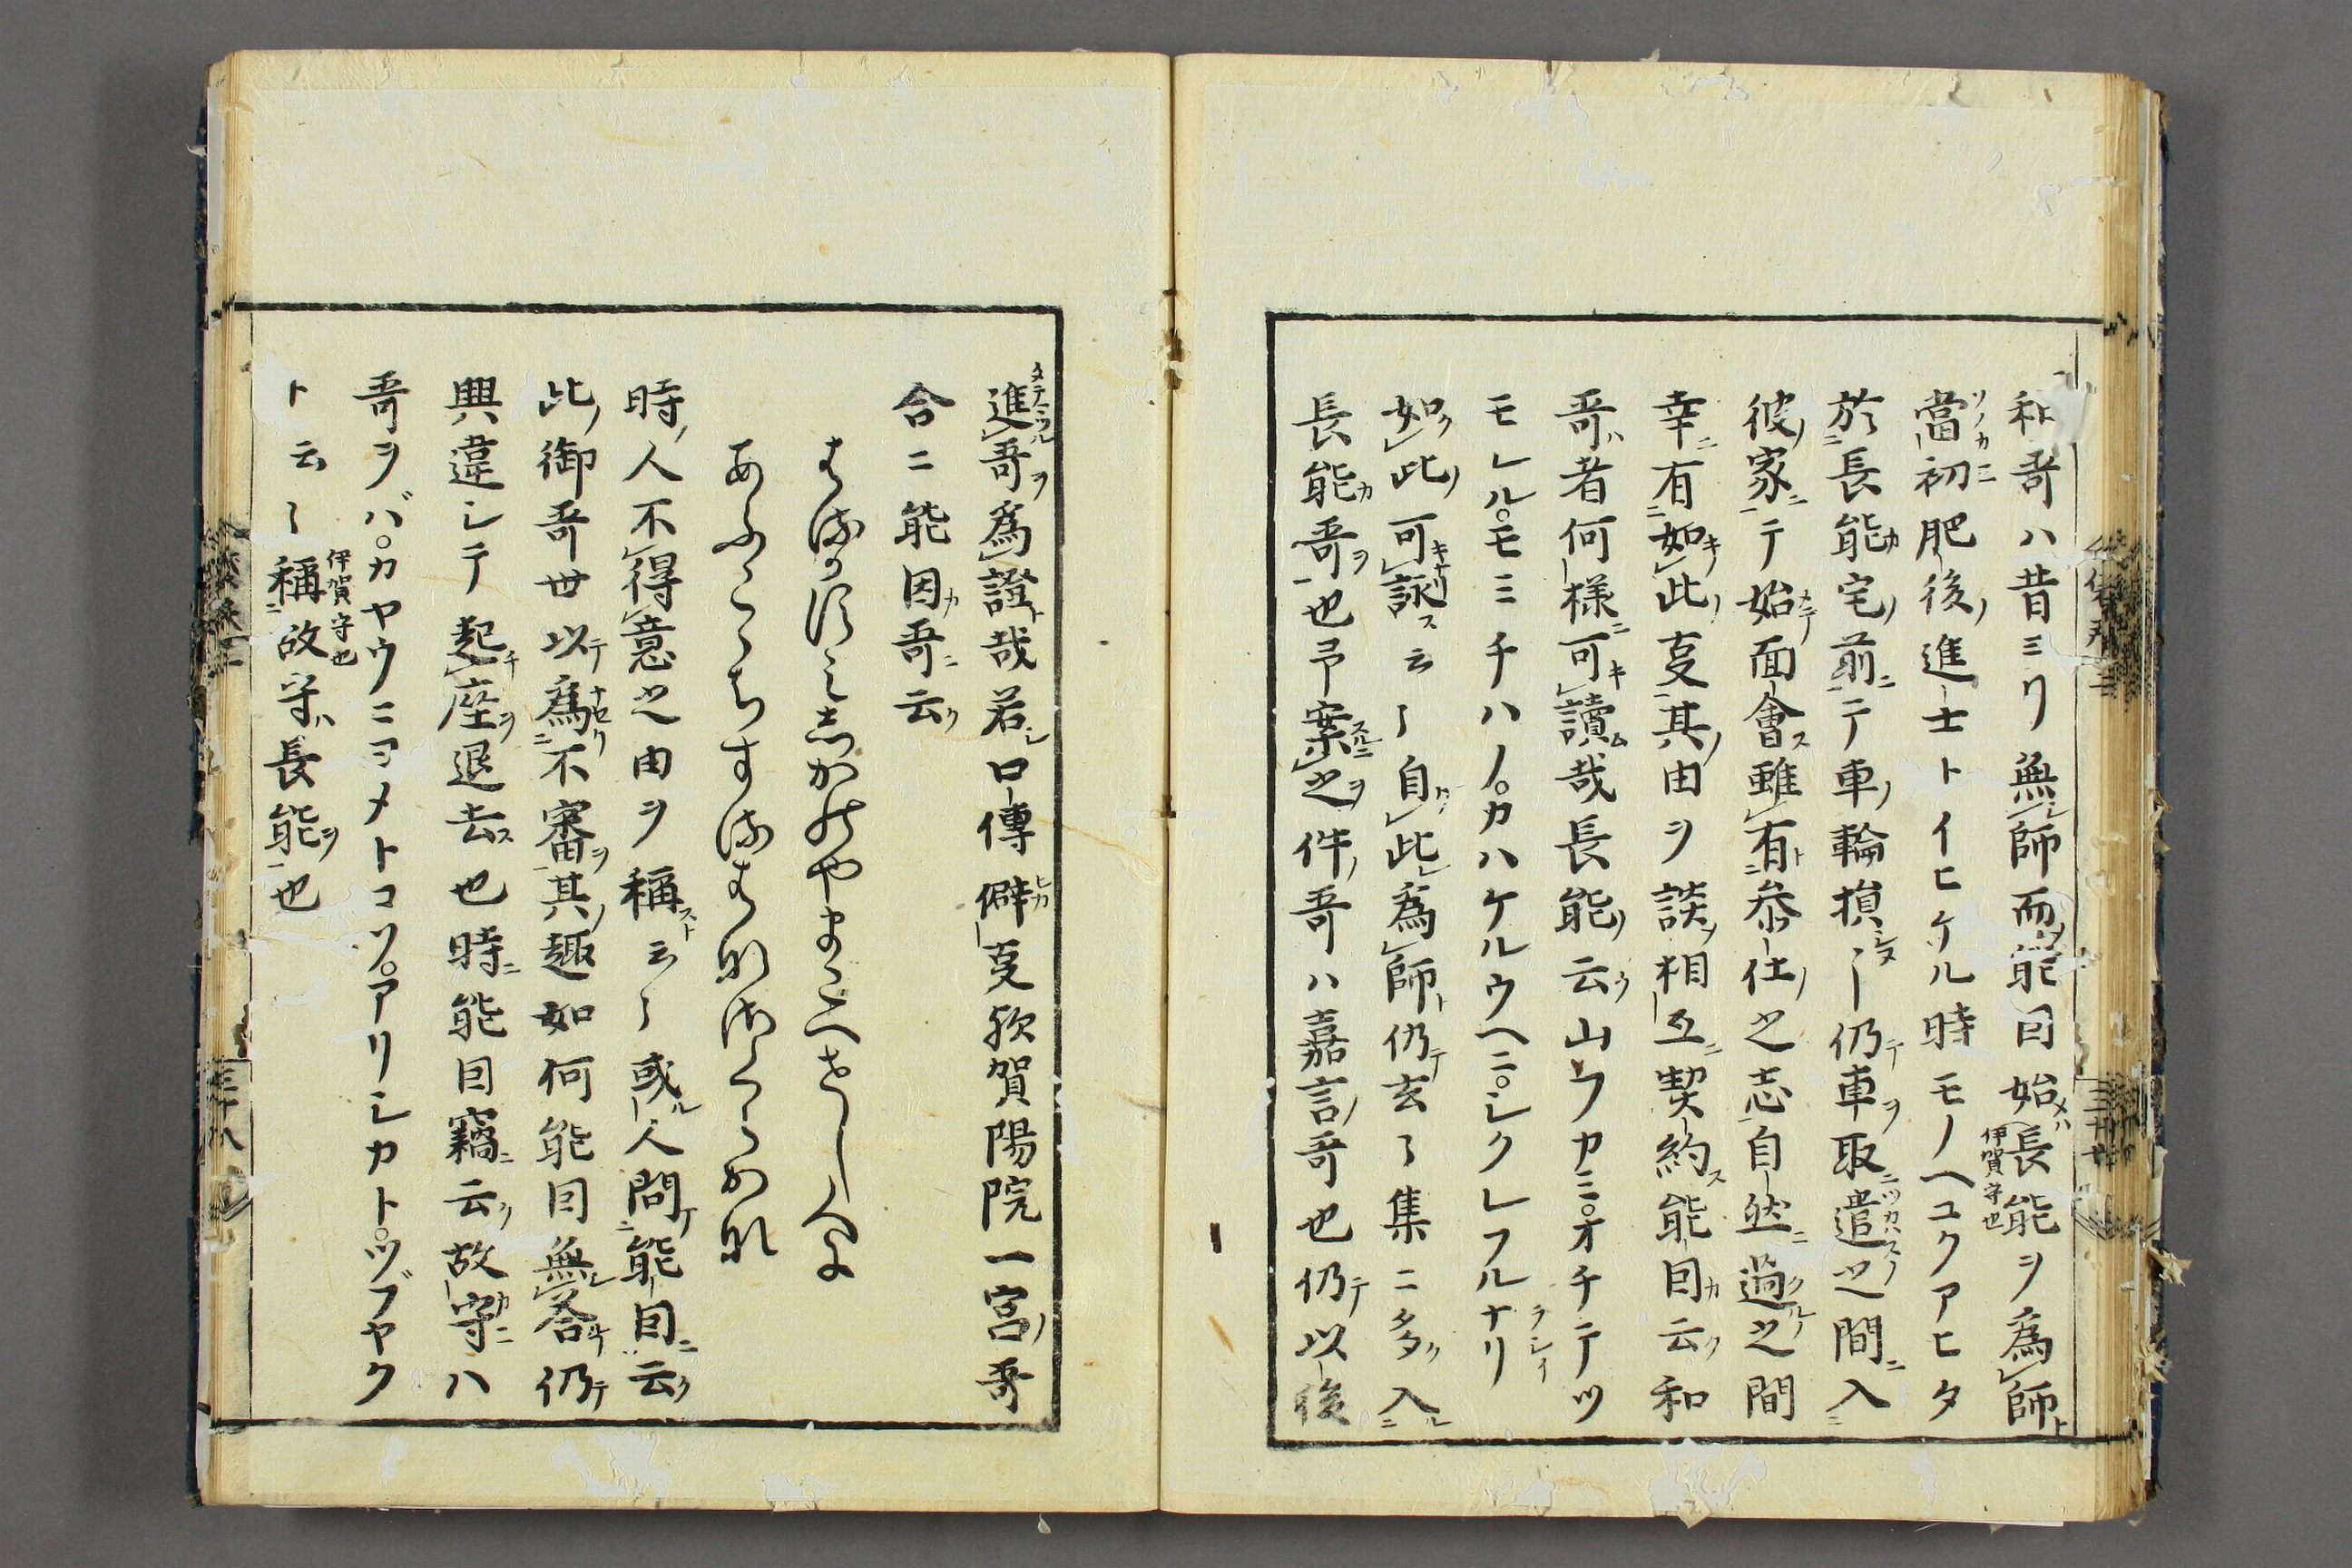 和哥ハ昔ヨリ無師而能因始長能ヲ為師
伊賀守也
當初肥後進士トイヒケル時モノヘユクアヒタ
於長能宅前ニテ車輪損シ仍車取遣之間入
彼家テ始面會雖有参仕之志自然過之間
幸有如此叓其由ヲ談相互契約能因云和
哥者何様可讀哉長能云山フカミ。オチテツ
モレル。モミチハノ。カハケルウヘニ。シクレフルナリ
如此可詠云々自此為師仍玄々集ニ多入
長能哥也予案之件哥ハ嘉言哥也仍以後
進哥為證哉若口傳僻叓歟賀陽院一宮哥
合ニ能因哥云
はるかすみしかのやまこへせし人に
あふこゝちするはなさくらかな
時人不得意之由ヲ稱云々或人問能因云
此御哥世以為不審其趣如何能因無答仍
興違シテ起座退去也時能因竊云故守ハ
哥ヲバ。カヤウニヨメトコソ。アリシカト。ツブヤク
ト云々稱故守ハ長能也
伊賀守也
三十八